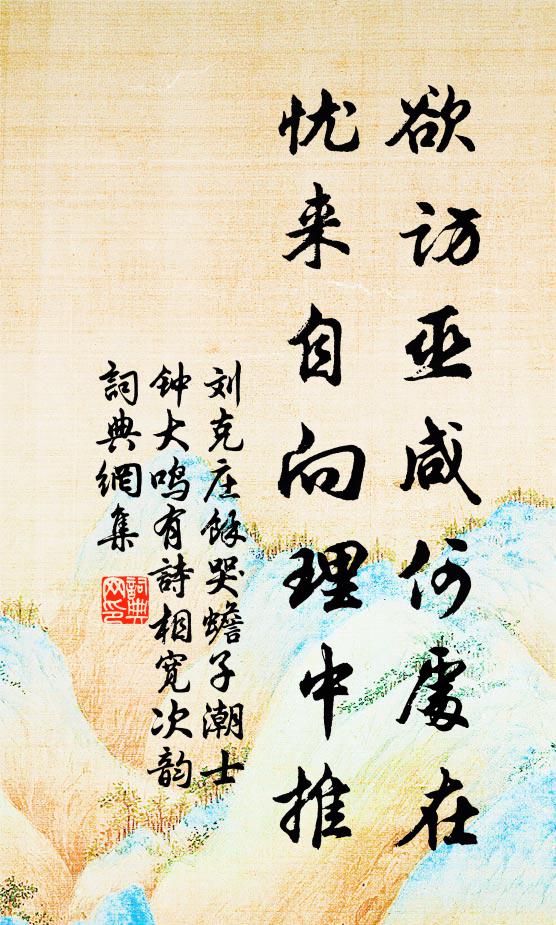 欲访巫咸何處在
忧来自向理中推
刘克庄馀哭蟾子潮士
钟大鸣有詩相宽次韵
詞典網集
詞典
网印